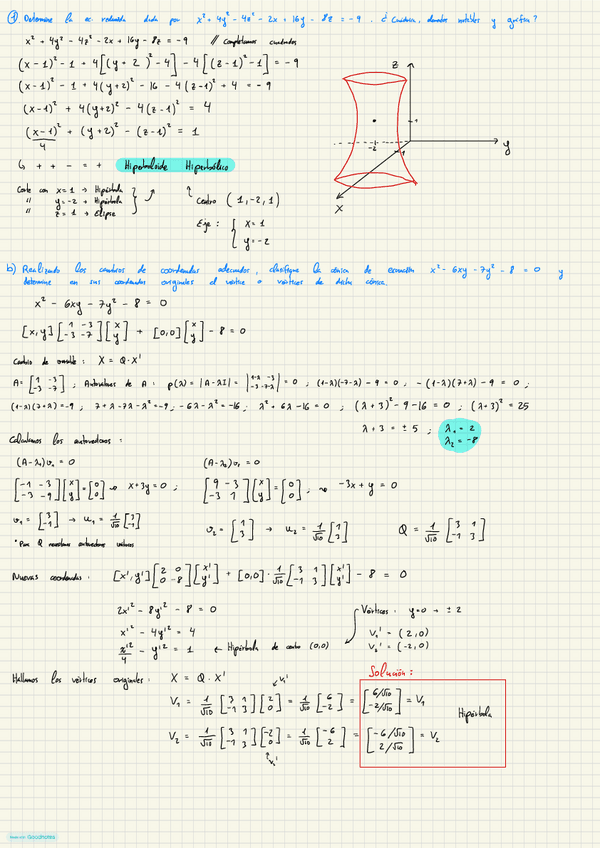 ① Determine la ec. reducida dada por x² + 4y² - 4z² - 2x + 16y - 8z = -9 . ¿ Cuádrica, elementos notables y gráfica?
x² + 4y² - 4z² - 2x + 16y - 8z = -9 // Completamos cuadrados
(x-1)² - 1 + 4[(y+2)² - 4] - 4[(z-1)² - 1] = -9
(x-1)² - 1 + 4(y+2)² - 16 - 4(z-1)² + 4 = -9
(x-1)² + 4(y+2)² - 4(z-1)² = 4
(x-1)²/4 + (y+2)² - (z-1)² = 1
↳ + + - = + Hiperboloide Hiperbólico
Corte con x=1 → Hipérbola
" y=-2 → Hipérbola
" z=1 → Elipse
Centro (1,-2,1)
Eje : { x=1
y=-2
z
y
x
-2
1
1
b) Realizando los cambios de coordenadas adecuados, clasifique la cónica de ecuación x² - 6xy - 7y² - 8 = 0 y
determine en sus coordenadas originales el vértice o vértices de dicha cónica.
x² - 6xy - 7y² - 8 = 0
[x,y] [1 -3; -3 -7] [x; y] + [0,0] [x; y] - 8 = 0
Cambio de variable : X = Q·X'
A = [1 -3; -3 -7] ; Autovalores de A : p(λ) = |A-λI| = |1-λ -3; -3 -7-λ| = 0 ; (1-λ)(-7-λ) - 9 = 0 ; -(1-λ)(7+λ) - 9 = 0 ;
(1-λ)(7+λ) = -9 ; 7+λ-7λ-λ² = -9 ; -6λ-λ² = -16 ; λ²+6λ-16 = 0 ; (λ+3)² - 9 - 16 = 0 ; (λ+3)² = 25
λ+3 = ±5 ; λ₁ = 2
λ₂ = -8
Calculamos los autovectores :
(A-λ₁)v₁ = 0 (A-λ₂)v₂ = 0
[-1 -3; -3 -9] [x; y] = [0; 0] → x+3y = 0 ; [9 -3; -3 1] [x; y] = [0; 0] ; → -3x+y = 0
v₁ = [3; -1] → u₁ = 1/√10 [3; -1] v₂ = [1; 3] → u₂ = 1/√10 [1; 3] Q = 1/√10 [3 1; -1 3]
* Para Q necesitamos autovectores unitarios
Nuevas coordenadas : [x',y'] [2 0; 0 -8] [x'; y'] + [0,0] · 1/√10 [3 1; -1 3] [x'; y'] - 8 = 0
2x'² - 8y'² - 8 = 0
x'² - 4y'² = 4
x'²/4 - y'² = 1 ← Hipérbola de centro (0,0)
Vértices : y=0 → ±2
V₁' = (2,0)
V₂' = (-2,0)
Hallamos los vértices originales : X = Q·X'
V₁'
V₁ = 1/√10 [3 1; -1 3] [2; 0] = 1/√10 [6; -2] = [6/√10; -2/√10] = V₁
V₂ = 1/√10 [3 1; -1 3] [-2; 0] = 1/√10 [-6; 2] = [-6/√10; 2/√10] = V₂
V₂'
Solución :
Hipérbola
Made with Goodnotes